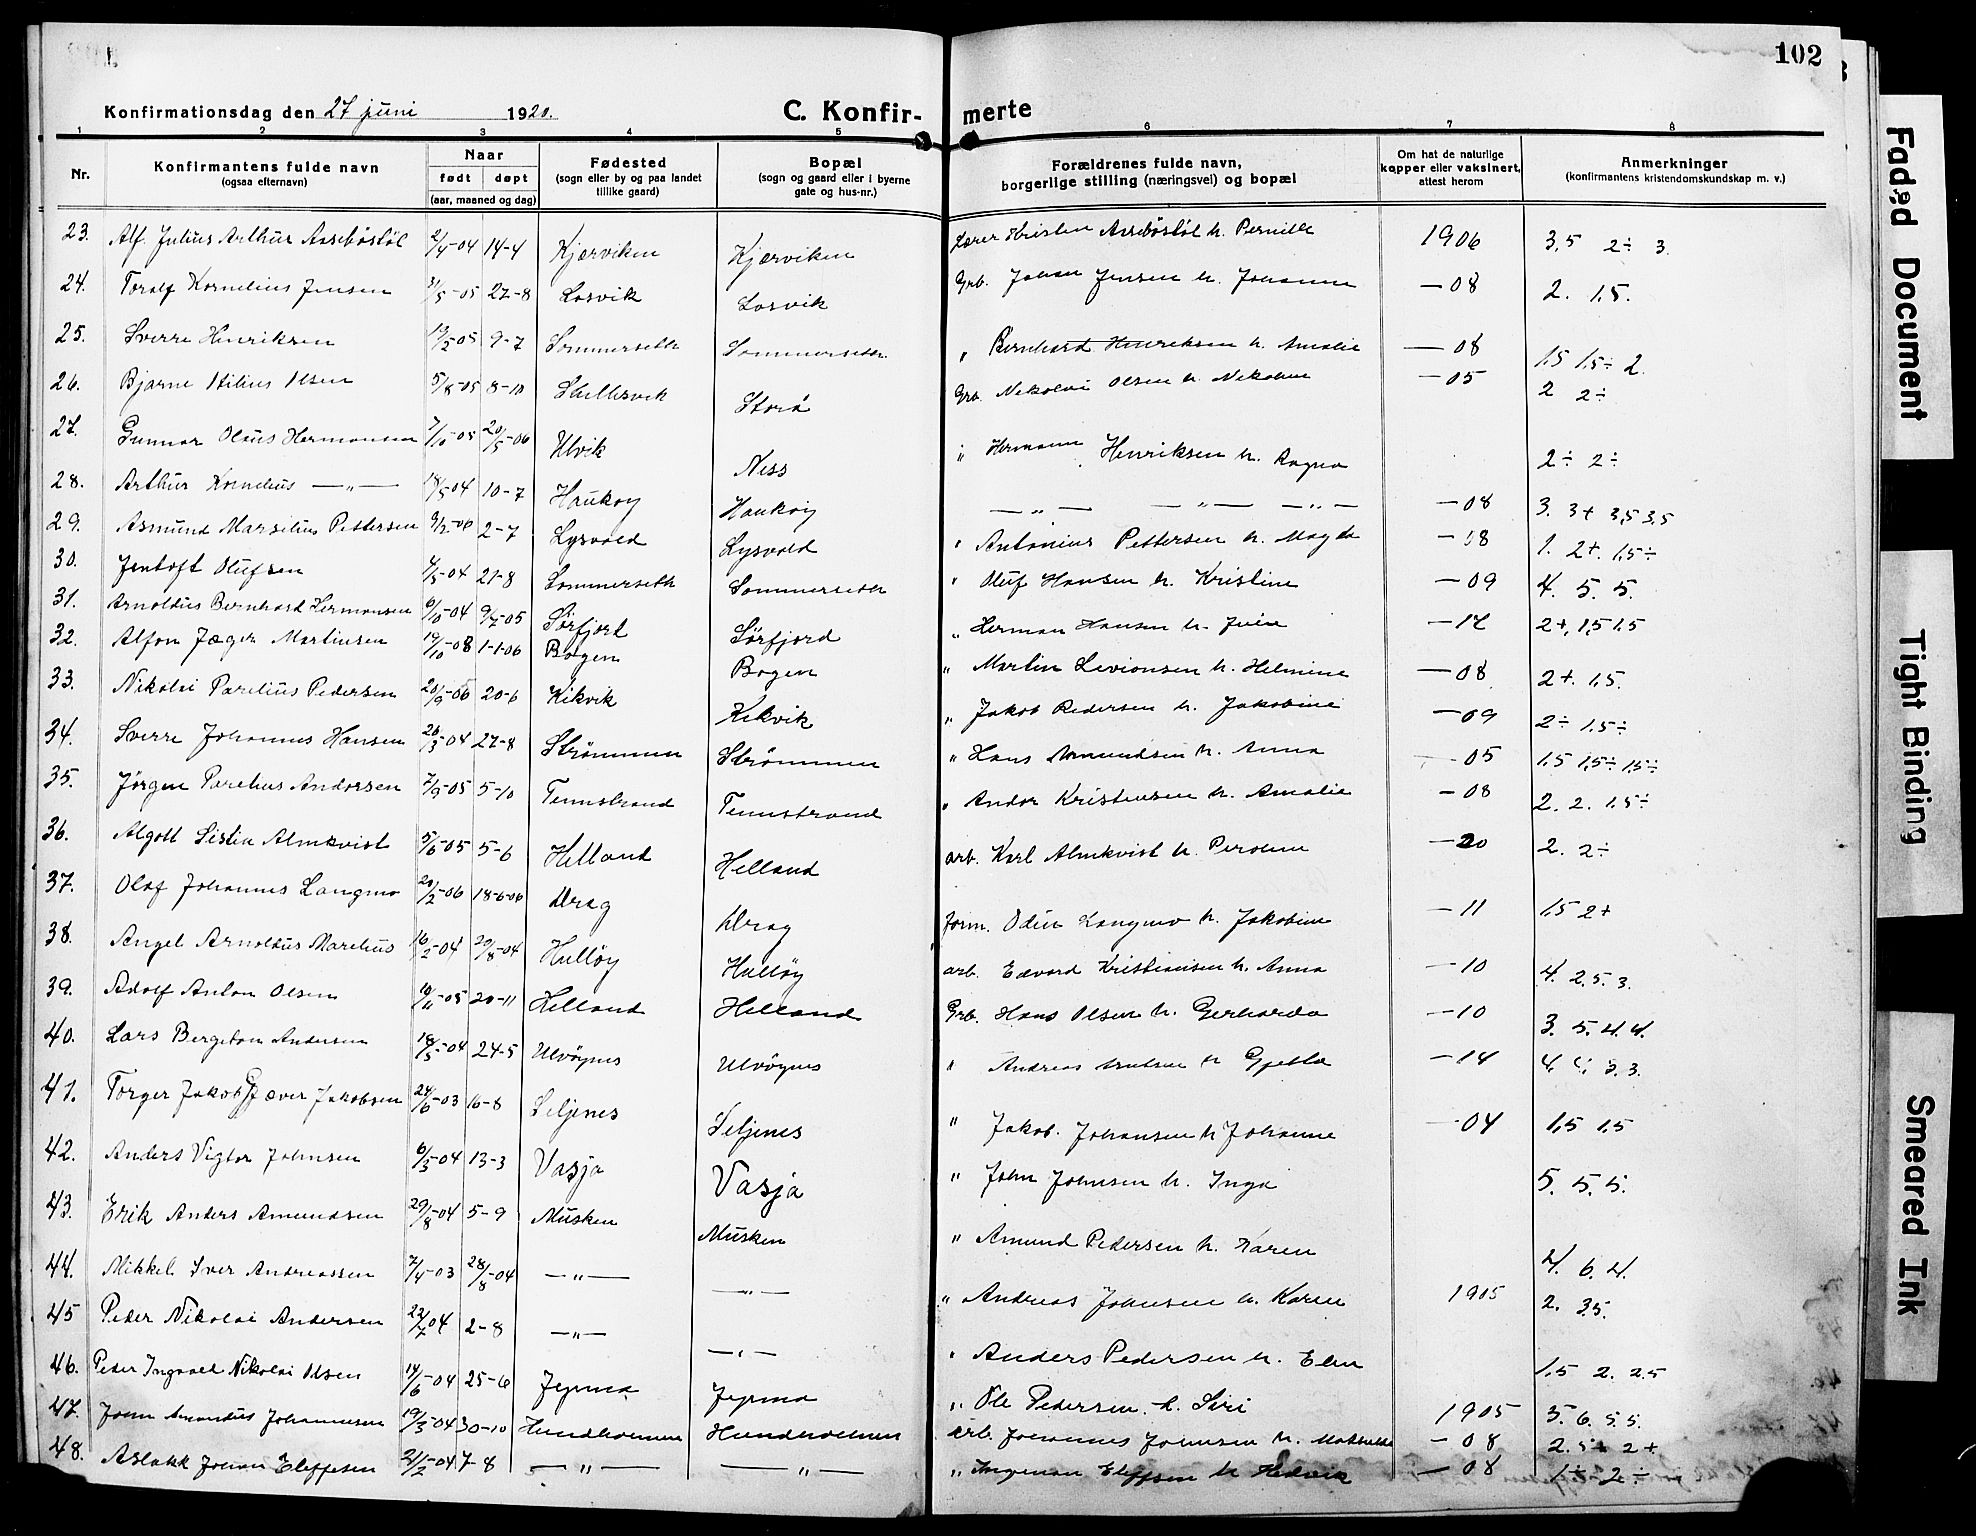 102
Konfirmationsdag den 27 juni 1920.
C. Konfir- merte
1 2 3 4 5 6 7 8
Nr. Konfirmantens fulde navn (ogsaa efternavn) Naar født døpt (aar, maaned og dag) Fødested (sogn eller by og paa landet tillike gaard) Bopæl (sogn og gaard eller i byerne gate og hus-nr.) Forældrenes fulde navn, borgerlige stilling (næringsvei) og bopæl Om hat de naturlige kopper eller vaksinert, attest herom Anmerkninger (konfirmantens kristendomskundskap m. v.)
23. Alf Julius Arthur 2/4-04 14-4 Kjærviken Kjærviken Lærer Kristen h. Pernille 1906 3,5 2÷ 3.
24. Toralf Kornelius Jensen 31/5-05 27-8 Losvik Losvik Grb. Johan Jensen h. Johanne -08 2. 1,5.
25. Sverre Henriksen 9-7 Sommerseth Sommerseth " Bernhard Henriksen h. Amalie -08 1,5 1,5÷ 2.
26. Bjarne Olsen 5/8-05 8-10 Storå Grb. Nikolai Olsen h. Nikoline -05 2 2÷
27. Gunnar Olaus Hermansen 7/10-05 20/5-06 Ulvik Ness " Hermann Henriksen h. Ragna 2÷ 2÷
28. Arthur Kornelius —"— 18/5-04 10-7 Haukøy Haukøy —"— —"— —"— -08 3. 3+ 3,5 3,5
29. Asmund Marselius Pettersen 2-7 Lysvold Lysvold " Antonius Pettersen h. Magda -08 1. 2+. 1,5÷
30. Jentoft Olufsen 4/5-04 21-8 Sommerseth Sommerseth " Oluf Hansen h. Kristine -09 4. 5. 5.
31. Arnoldus Bernhard Hermansen 6/10-04 9/7-05 Sørfjord Sørfjord " Herman Hansen h. -14 2+, 1,5 1,5
32. Alfon Jæger Martinsen 19/10-08 1-1-06 Bogen Bogen " Martin Levionsen h. Helmine -08 2+. 1,5.
33. Nikolai Parelius Pedersen 20/9-06 20-6 Kikvik Kikvik " Jakob Pedersen h. Jakobine -09 2÷ 1,5÷
34. Sverre Johannes Hansen 26/3-04 27-8 Strømmen Strømmen " Hans Amundsen h. Anna -05 1,5 1,5÷ 1,5÷
35. Jørgen Parelius Andorsen 7/9-05 5-10 Tennstrand Tennstrand " Andor Kristensen h. Amalie -08 2. 2. 1,5÷
36. Algott Almkvist 5/6-05 5-6 Helland Helland arb. Karl Almkvist h. -20 2. 2÷
37. Olaf Johannes Langmo 20/2-06 18-6-06 Drag Drag form. Odin Langmo h. Jakobine -11 1,5 2+
38. Angel Arnoldus Marelius 16/2-04 20/8-04 Hulløy Hulløy arb. Edvard Kristiansen h. Anna -10 4. 2,5. 3.
39. Adolf Anton Olsen 10/11-05 20-11 Helland Helland Grb. Hans Olsen h. Gerharda -10 3. 5. 4. 4.
40. Lars Bergeton Andersen 18/5-04 24-5 Ulvøynes Ulvøynes " Andreas h -14 4. 3.
41. Torger Jakob Gjæver Jakobsen 24/6-03 16-8 Seljenes Seljenes " Jakob Johansen h Johanne -04 1,5 1,5
42. Anders Vigtor Johnsen 6/3-04 13-3 Vasja Vasja " John Johnsen h. Inga 5. 5. 5.
43. Erik Anders Amundsen 29/8-04 5-9 Musken Musken " Amund Pedersen h. Karen 4. 6. 4.
44. Mikkel Iver Andreassen 7/4-03 28/8-04 —"— —"— " Andreas Johnsen h. Karen 1905 2. 3,5.
45 Peder Nikolai Andersen 23/7-04 2-8 —"— —"— " Anders Pedersen h. Elen 1,5 2. 2,5
46. Peder Ingvald Nikolai Olsen 14/6-04 25-6 " Ole Pedersen h. Siri 1905 5. 6. 5. 5.
47. John Amandus Johannesen 19/3-04 30-10 Hundholmen Hundholmen arb. Johannes Johnsen h. -08 2. 5+ 2+
48. Aslakk Johan Eleffsen 21/2-04 7-8 —"— —"— " Eleffsen h Hedvik -08 1÷ 2÷
Faded Document
Tight Binding
Smeared Ink